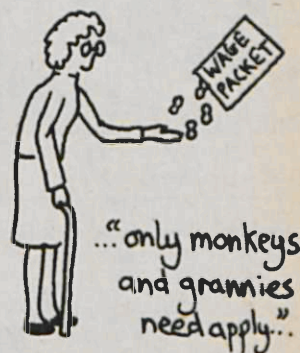 WAGE
PACKET
..."only monkeys
and grannies
need apply..."